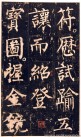 符歷試踰五
讓而紹登
寶圖握金鏡